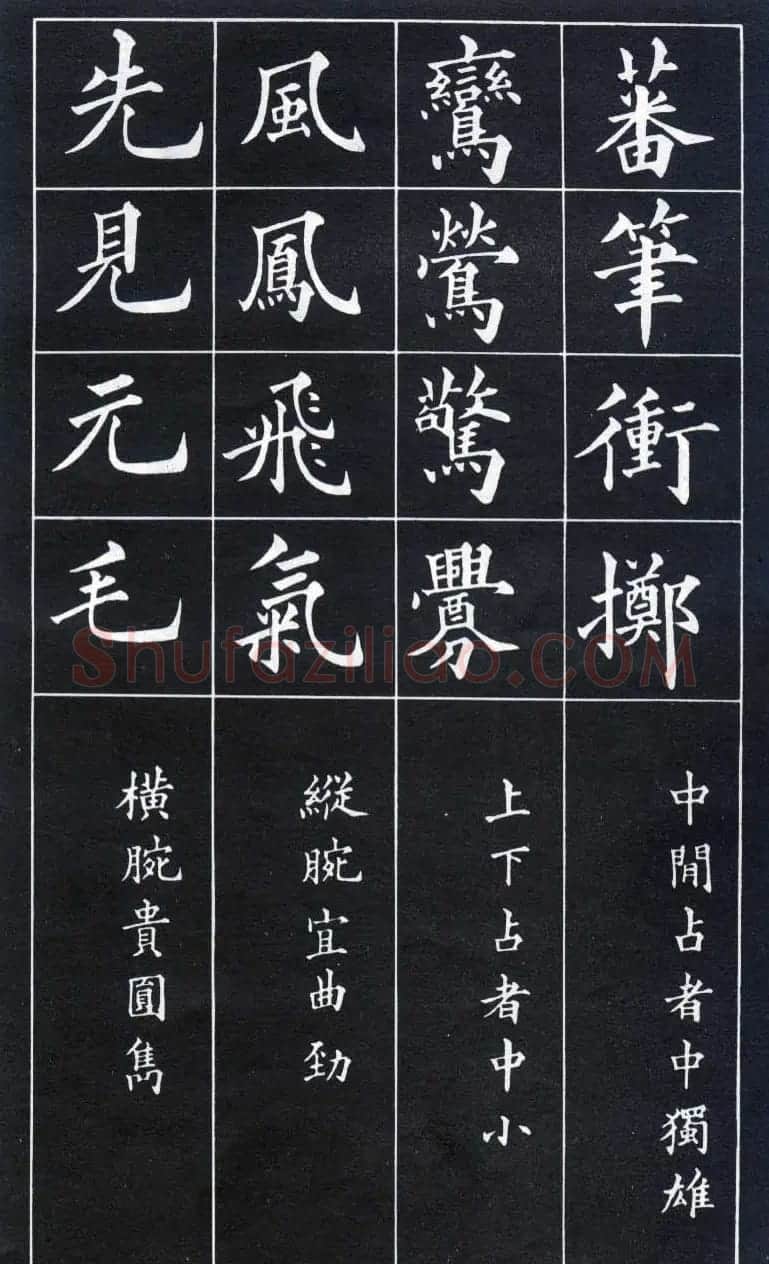 蕃筆衝擲
中間占者中獨雄
鸞鶯驚釁
上下占者中小
風鳳飛氣
縱腕宜曲勁
先見元毛
橫腕貴圓雋
Shufaziliao.COM